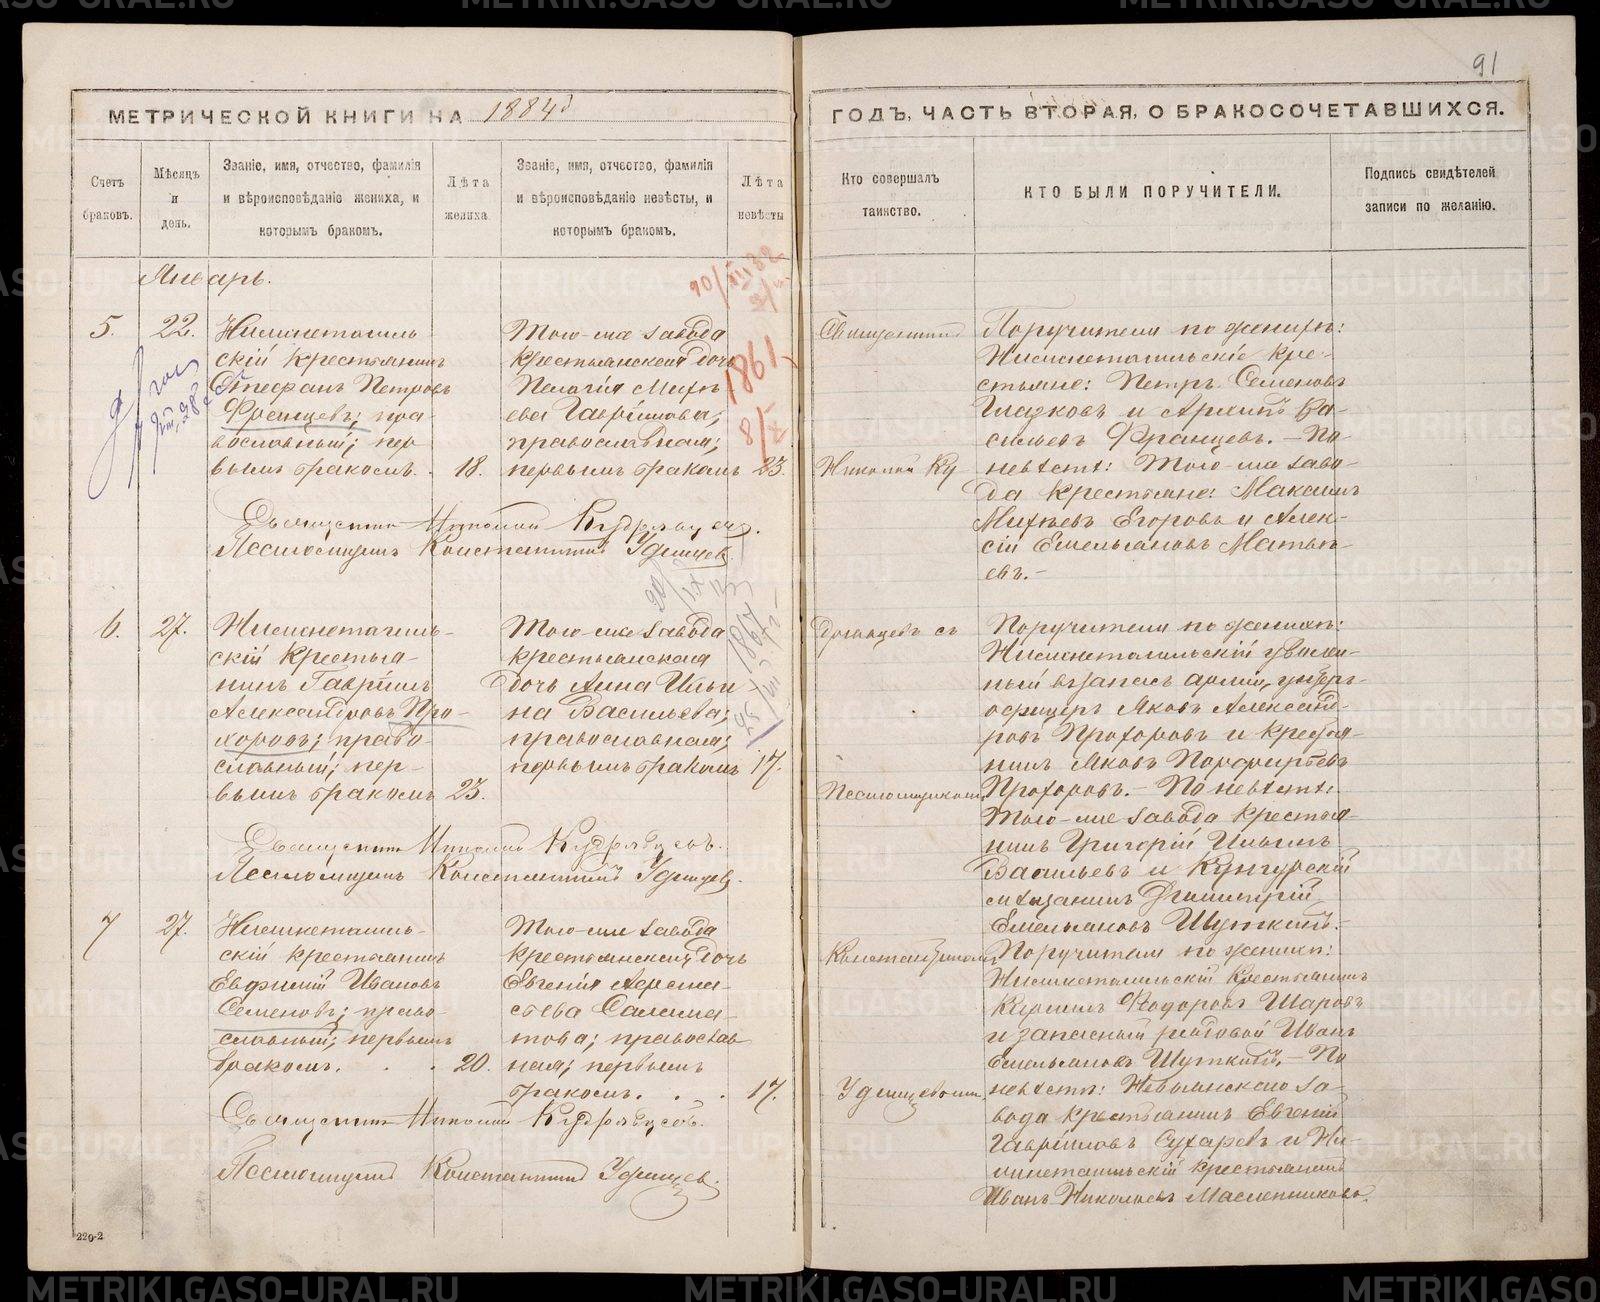 91
МЕТРИЧЕСКОЙ КНИГИ НА 1884й
ГОДЪ, ЧАСТЬ ВТОРАЯ, О БРАКОСОЧЕТАВШИХСЯ.
Счетъ браковъ.
Мѣсяцъ и день.
Званіе, имя, отчество, фамилія
и вѣроисповѣданіе жениха, и
которымъ бракомъ.
Лѣта жениха
Званіе, имя, отчество, фамилія
и вѣроисповѣданіе невѣсты, и
которымъ бракомъ.
Лѣта невѣсты
Кто совершалъ
таинство.
КТО БЫЛИ ПОРУЧИТЕЛИ.
Подпись свидѣтелей
записи по желанію.
Январь.
5.
22.
Нижнетагиль
скій крестьянинъ
Стефанъ Петровъ
Францевъ; пра-
вославный; пер-
вымъ бракомъ.
18.
Того-же завода
крестьянская дочь
Пелагія Михѣ-
ева Гаврилова;
православная;
первымъ бракомъ
23.
1861
Священникъ
Николай Ку
Поручители по женихѣ:
Нижнетагильскіе кре-
стьяне: Петръ Семеновъ
Гладковъ и Архипъ Ва-
сильевъ Францевъ. – По
невѣстѣ: Того-же заво-
да крестьяне: Максимъ
Михѣевъ Егоровъ и Алек-
сій Емельяновъ Матвѣ-
евъ. –
Священникъ Николай Кудрявцевъ.
Псаломщикъ Константинъ Удинцевъ.
6.
27.
Нижнетагиль-
скій крестья-
нинъ Гавріилъ
Александровъ Про-
хоровъ; право-
славный; пер-
вымъ бракомъ
23.
Того-же завода
крестьянская
дочь Анна Ильи
на Васильева;
православная;
первымъ бракомъ
17.
1867
дрявцевъ съ
Псаломщикомъ
Поручители по женихѣ:
Нижнетагильскій уволен-
ный въ запасъ арміи, унтеръ-
офицеръ Яковъ Александ-
ровъ Прохоровъ и крестья-
нинъ Яковъ Порфирьевъ
Прохоровъ. – По невѣстѣ:
Того-же завода крестья-
нинъ Григорій Ильинъ
Васильевъ и Кунгурскій
мѣщанинъ Димитрій
Емельяновъ Шуткинъ. –
Священникъ Николай Кудрявцевъ.
Псаломщикъ Константинъ Удинцевъ.
7
27.
Нижнетагиль-
скій крестьянинъ
Евфимій Ивановъ
Семеновъ; право-
славный; первымъ
бракомъ. . .
20.
Того-же завода
крестьянская дочь
Евгенія
това; православ
ная; первымъ
бракомъ. . .
17.
Константиномъ
Удинцевымъ.
Поручители по женихѣ:
Нижнетагильскій крестьянинъ
Кириллъ Ѳеодоровъ Шаровъ
и запасный рядовой Иванъ
Емельяновъ Шуткинъ. – По
невѣстѣ: Невьянскаго за-
вода крестьянинъ Евгеній
Гавриловъ Сухаревъ и Ни-
жнетагильскій крестьянинъ
Иванъ Николаевъ Масленниковъ.
Священникъ Николай Кудрявцевъ.
Псаломщикъ Константинъ Удинцев.
220-2
METRIKI.GASO-URAL.RU